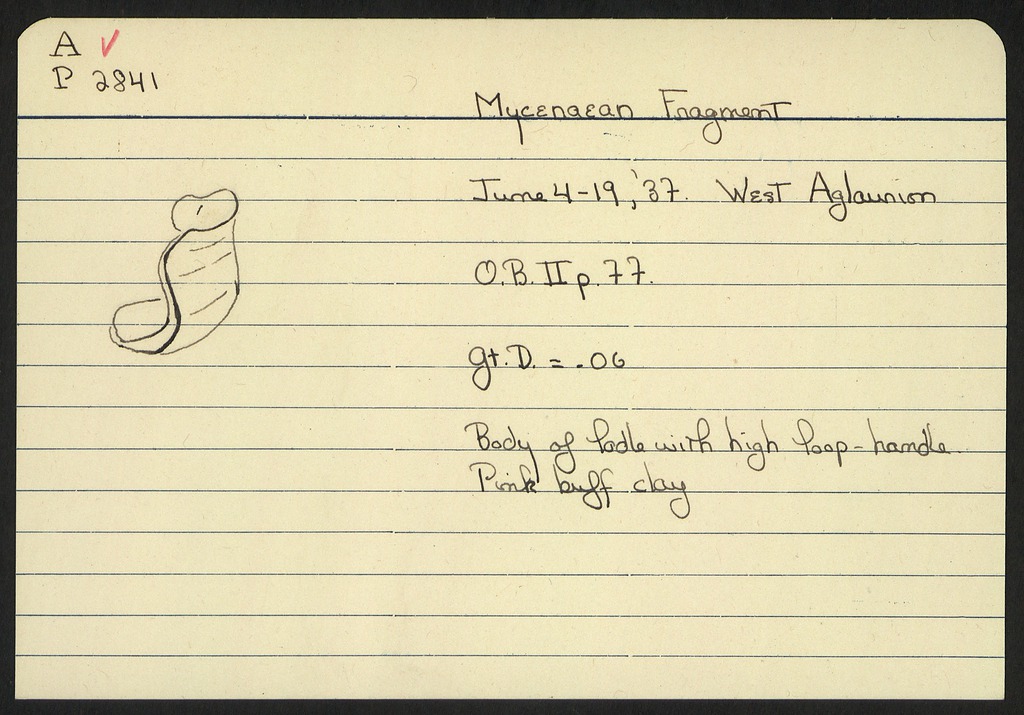 A ✓
P 2841
Mycenaean Fragment
June 4-19, '37. West Aglaurion
O.B. II p. 77.
gt. D. = .06
Body of ladle with high loop-handle
Pink buff clay